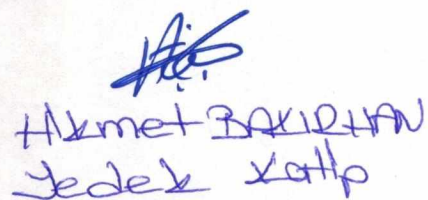 Hikmet BAKIRHAN
Yedek Katip